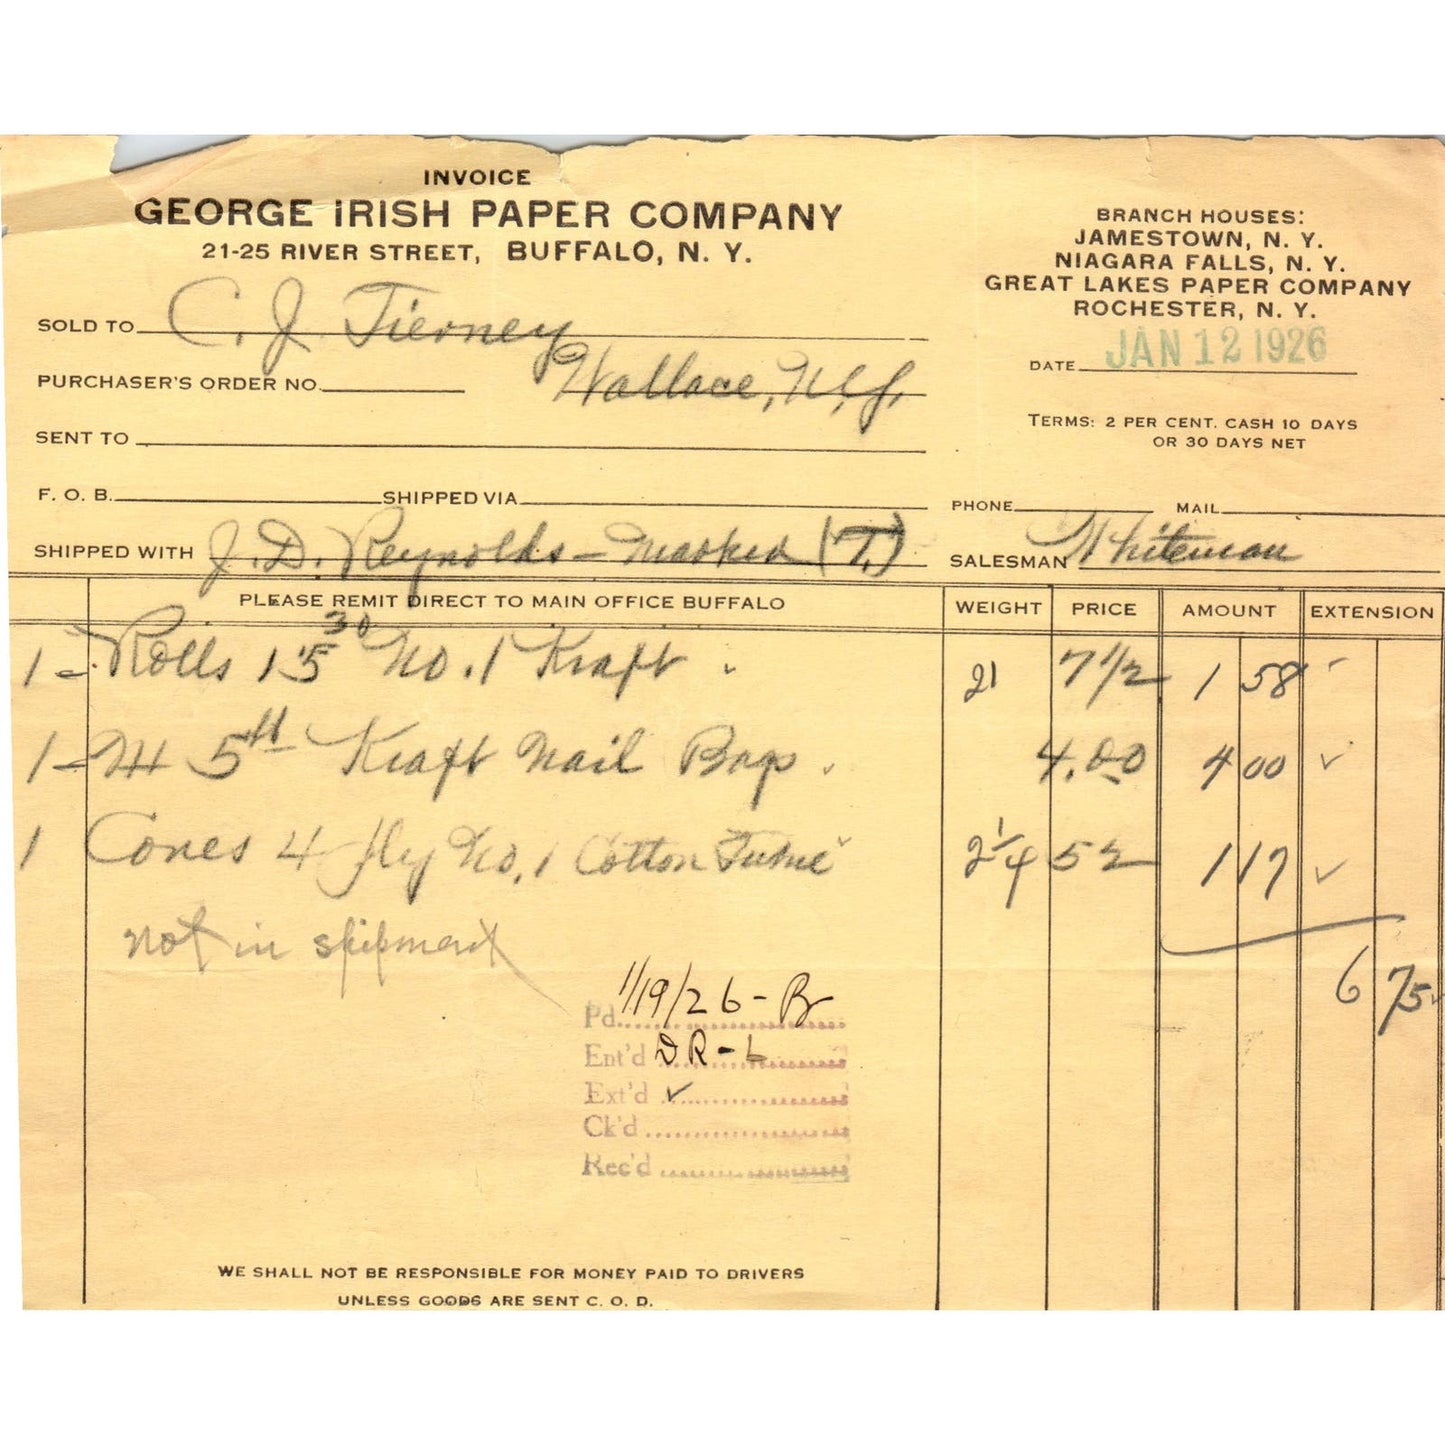 INVOICE
GEORGE IRISH PAPER COMPANY
21-25 RIVER STREET, BUFFALO, N. Y.
BRANCH HOUSES:
JAMESTOWN, N. Y.
NIAGARA FALLS, N. Y.
GREAT LAKES PAPER COMPANY
ROCHESTER, N. Y.
SOLD TO C. J. Tierney
DATE JAN 12 1926
PURCHASER'S ORDER NO. Wallace, N.Y.
TERMS: 2 PER CENT. CASH 10 DAYS
OR 30 DAYS NET
SENT TO
F. O. B. SHIPPED VIA
PHONE MAIL
SHIPPED WITH J. D. Reynolds - Marked (T.)
SALESMAN Whiteman
PLEASE REMIT DIRECT TO MAIN OFFICE BUFFALO WEIGHT PRICE AMOUNT EXTENSION
1 - Rolls 15 30 No. 1 Kraft 21 7 1/2 1 58
1 - M 5# Kraft Nail Bags. 4.00 4 00 ✓
1 Cones 4 Ply No. 1 Cotton 2 1/4 52 1 17 ✓
not in shipment
6 75
Pd. 1/19/26 - B
Ent'd DR-6
Ext'd ✓
Ck'd
Rec'd
WE SHALL NOT BE RESPONSIBLE FOR MONEY PAID TO DRIVERS
UNLESS GOODS ARE SENT C. O. D.